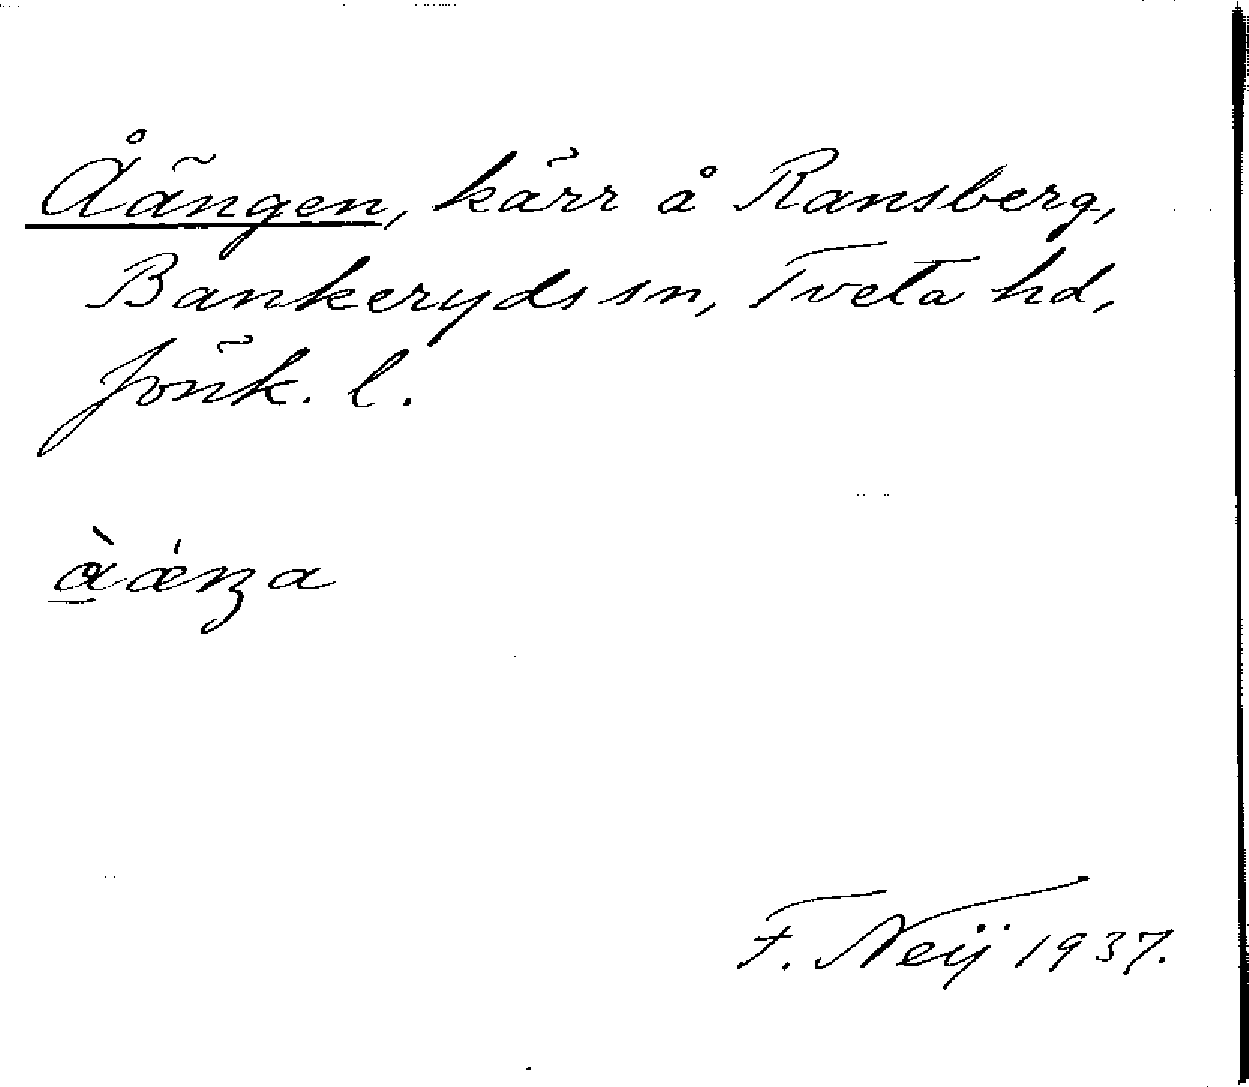 Åängen, kärr å Ransberg,
Bankeryds sn, Tveta hd,
Jönk. l.
F. Neij 1937.